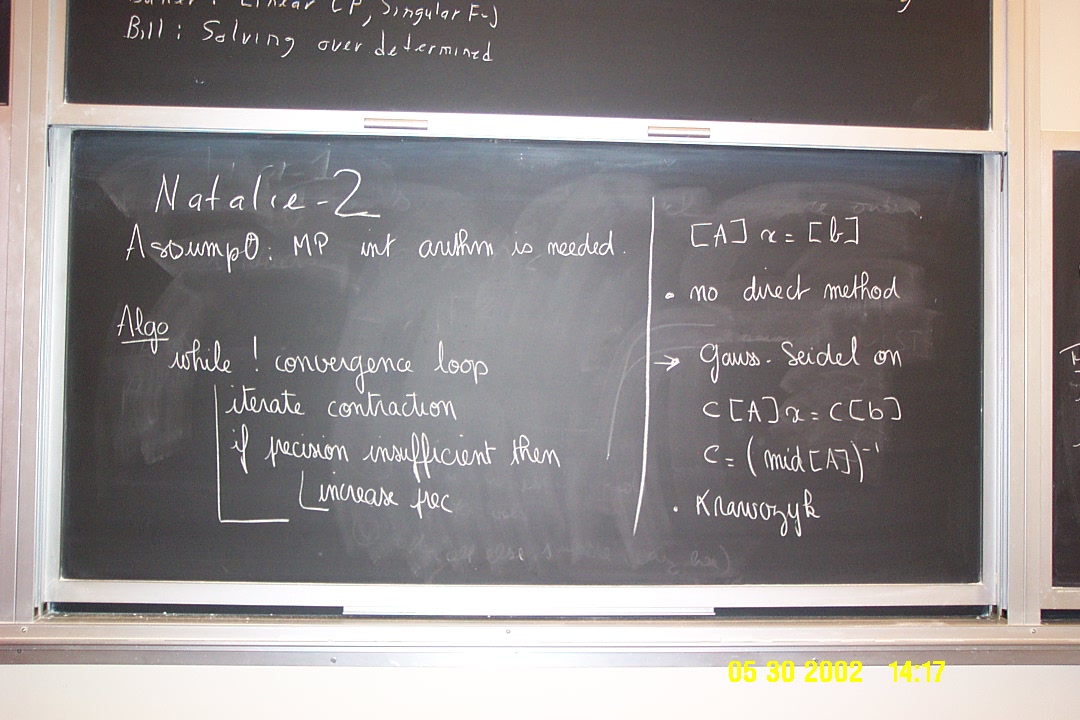 : Linear CP, Singular F-J
Bill : Solving over determined
Natalie - 2
Assump0: MP int arithm is needed.
Algo
while ! convergence loop
iterate contraction
if precision insufficient then
increase prec
[A] x = [b]
• no direct method
→ Gauss-Seidel on
C[A]x = C[b]
C = (mid[A])⁻¹
• Krawczyk
05 30 2002 14:17